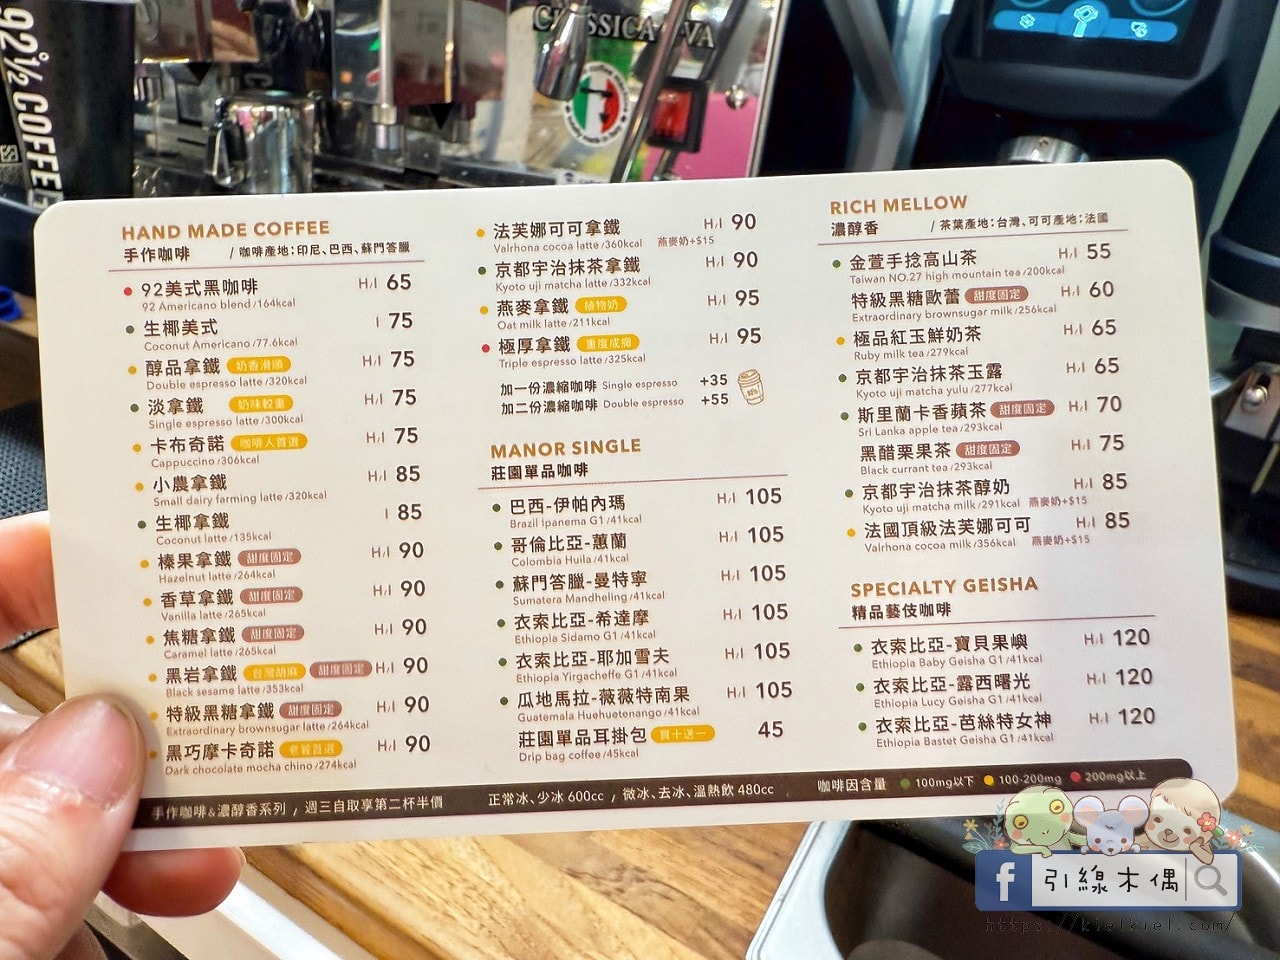 92½ COFFEE
CLASSICA
VA
HAND MADE COFFEE
手作咖啡 / 咖啡產地:印尼、巴西、蘇門答臘
92美式黑咖啡 H/I 65
92 Americano blend /164kcal
生椰美式 I 75
Coconut Americano /77.6kcal
醇品拿鐵 奶香滑順 H/I 75
Double espresso latte /320kcal
淡拿鐵 奶味較重 H/I 75
Single espresso latte /300kcal
卡布奇諾 咖啡人首選 H/I 75
Cappuccino /306kcal
小農拿鐵 H/I 85
Small dairy farming latte /320kcal
生椰拿鐵 I 85
Coconut latte /135kcal
榛果拿鐵 甜度固定 H/I 90
Hazelnut latte /264kcal
香草拿鐵 甜度固定 H/I 90
Vanilla latte /265kcal
焦糖拿鐵 甜度固定 H/I 90
Caramel latte /265kcal
黑岩拿鐵 台灣胡麻 甜度固定 H/I 90
Black sesame latte /353kcal
特級黑糖拿鐵 甜度固定 H/I 90
Extraordinary brownsugar latte /264kcal
黑巧摩卡奇諾 老饕首選 H/I 90
Dark chocolate mocha chino /274kcal
法芙娜可可拿鐵 H/I 90
Valrhona cocoa latte /360kcal 燕麥奶+$15
京都宇治抹茶拿鐵 H/I 90
Kyoto uji matcha latte /332kcal
燕麥拿鐵 植物奶 H/I 95
Oat milk latte /211kcal
極厚拿鐵 重度成癮 H/I 95
Triple espresso latte /325kcal
加一份濃縮咖啡 Single espresso +35
加二份濃縮咖啡 Double espresso +55
MANOR SINGLE
莊園單品咖啡
巴西-伊帕內瑪 H/I 105
Brazil Ipanema G1 /41kcal
哥倫比亞-蕙蘭 H/I 105
Colombia Huila /41kcal
蘇門答臘-曼特寧 H/I 105
Sumatera Mandheling /41kcal
衣索比亞-希達摩 H/I 105
Ethiopia Sidamo G1 /41kcal
衣索比亞-耶加雪夫 H/I 105
Ethiopia Yirgacheffe G1 /41kcal
瓜地馬拉-薇薇特南果 H/I 105
Guatemala Huehuetenango /41kcal
莊園單品耳掛包 買十送一 45
Drip bag coffee /45kcal
RICH MELLOW
濃醇香 / 茶葉產地:台灣、可可產地:法國
金萱手捻高山茶 H/I 55
Taiwan NO.27 high mountain tea /200kcal
特級黑糖歐蕾 甜度固定 H/I 60
Extraordinary brownsugar milk /256kcal
極品紅玉鮮奶茶 H/I 65
Ruby milk tea /279kcal
京都宇治抹茶玉露 H/I 65
Kyoto uji matcha yulu /277kcal
斯里蘭卡香蘋茶 甜度固定 H/I 70
Sri Lanka apple tea /293kcal
黑醋栗果茶 甜度固定 H/I 75
Black currant tea /293kcal
京都宇治抹茶醇奶 H/I 85
Kyoto uji matcha milk /291kcal 燕麥奶+$15
法國頂級法芙娜可可 H/I 85
Valrhona cocoa milk /356kcal 燕麥奶+$15
SPECIALTY GEISHA
精品藝伎咖啡
衣索比亞-寶貝果嶼 H/I 120
Ethiopia Baby Geisha G1 /41kcal
衣索比亞-露西曙光 H/I 120
Ethiopia Lucy Geisha G1 /41kcal
衣索比亞-芭絲特女神 H/I 120
Ethiopia Bastet Geisha G1 /41kcal
手作咖啡&濃醇香系列 / 週三自取享第二杯半價 正常冰、少冰 600cc / 微冰、去冰、溫熱飲 480cc 咖啡因含量 100mg以下 100-200mg 200mg以上
f 引線木偶
https://kielkiel.com/